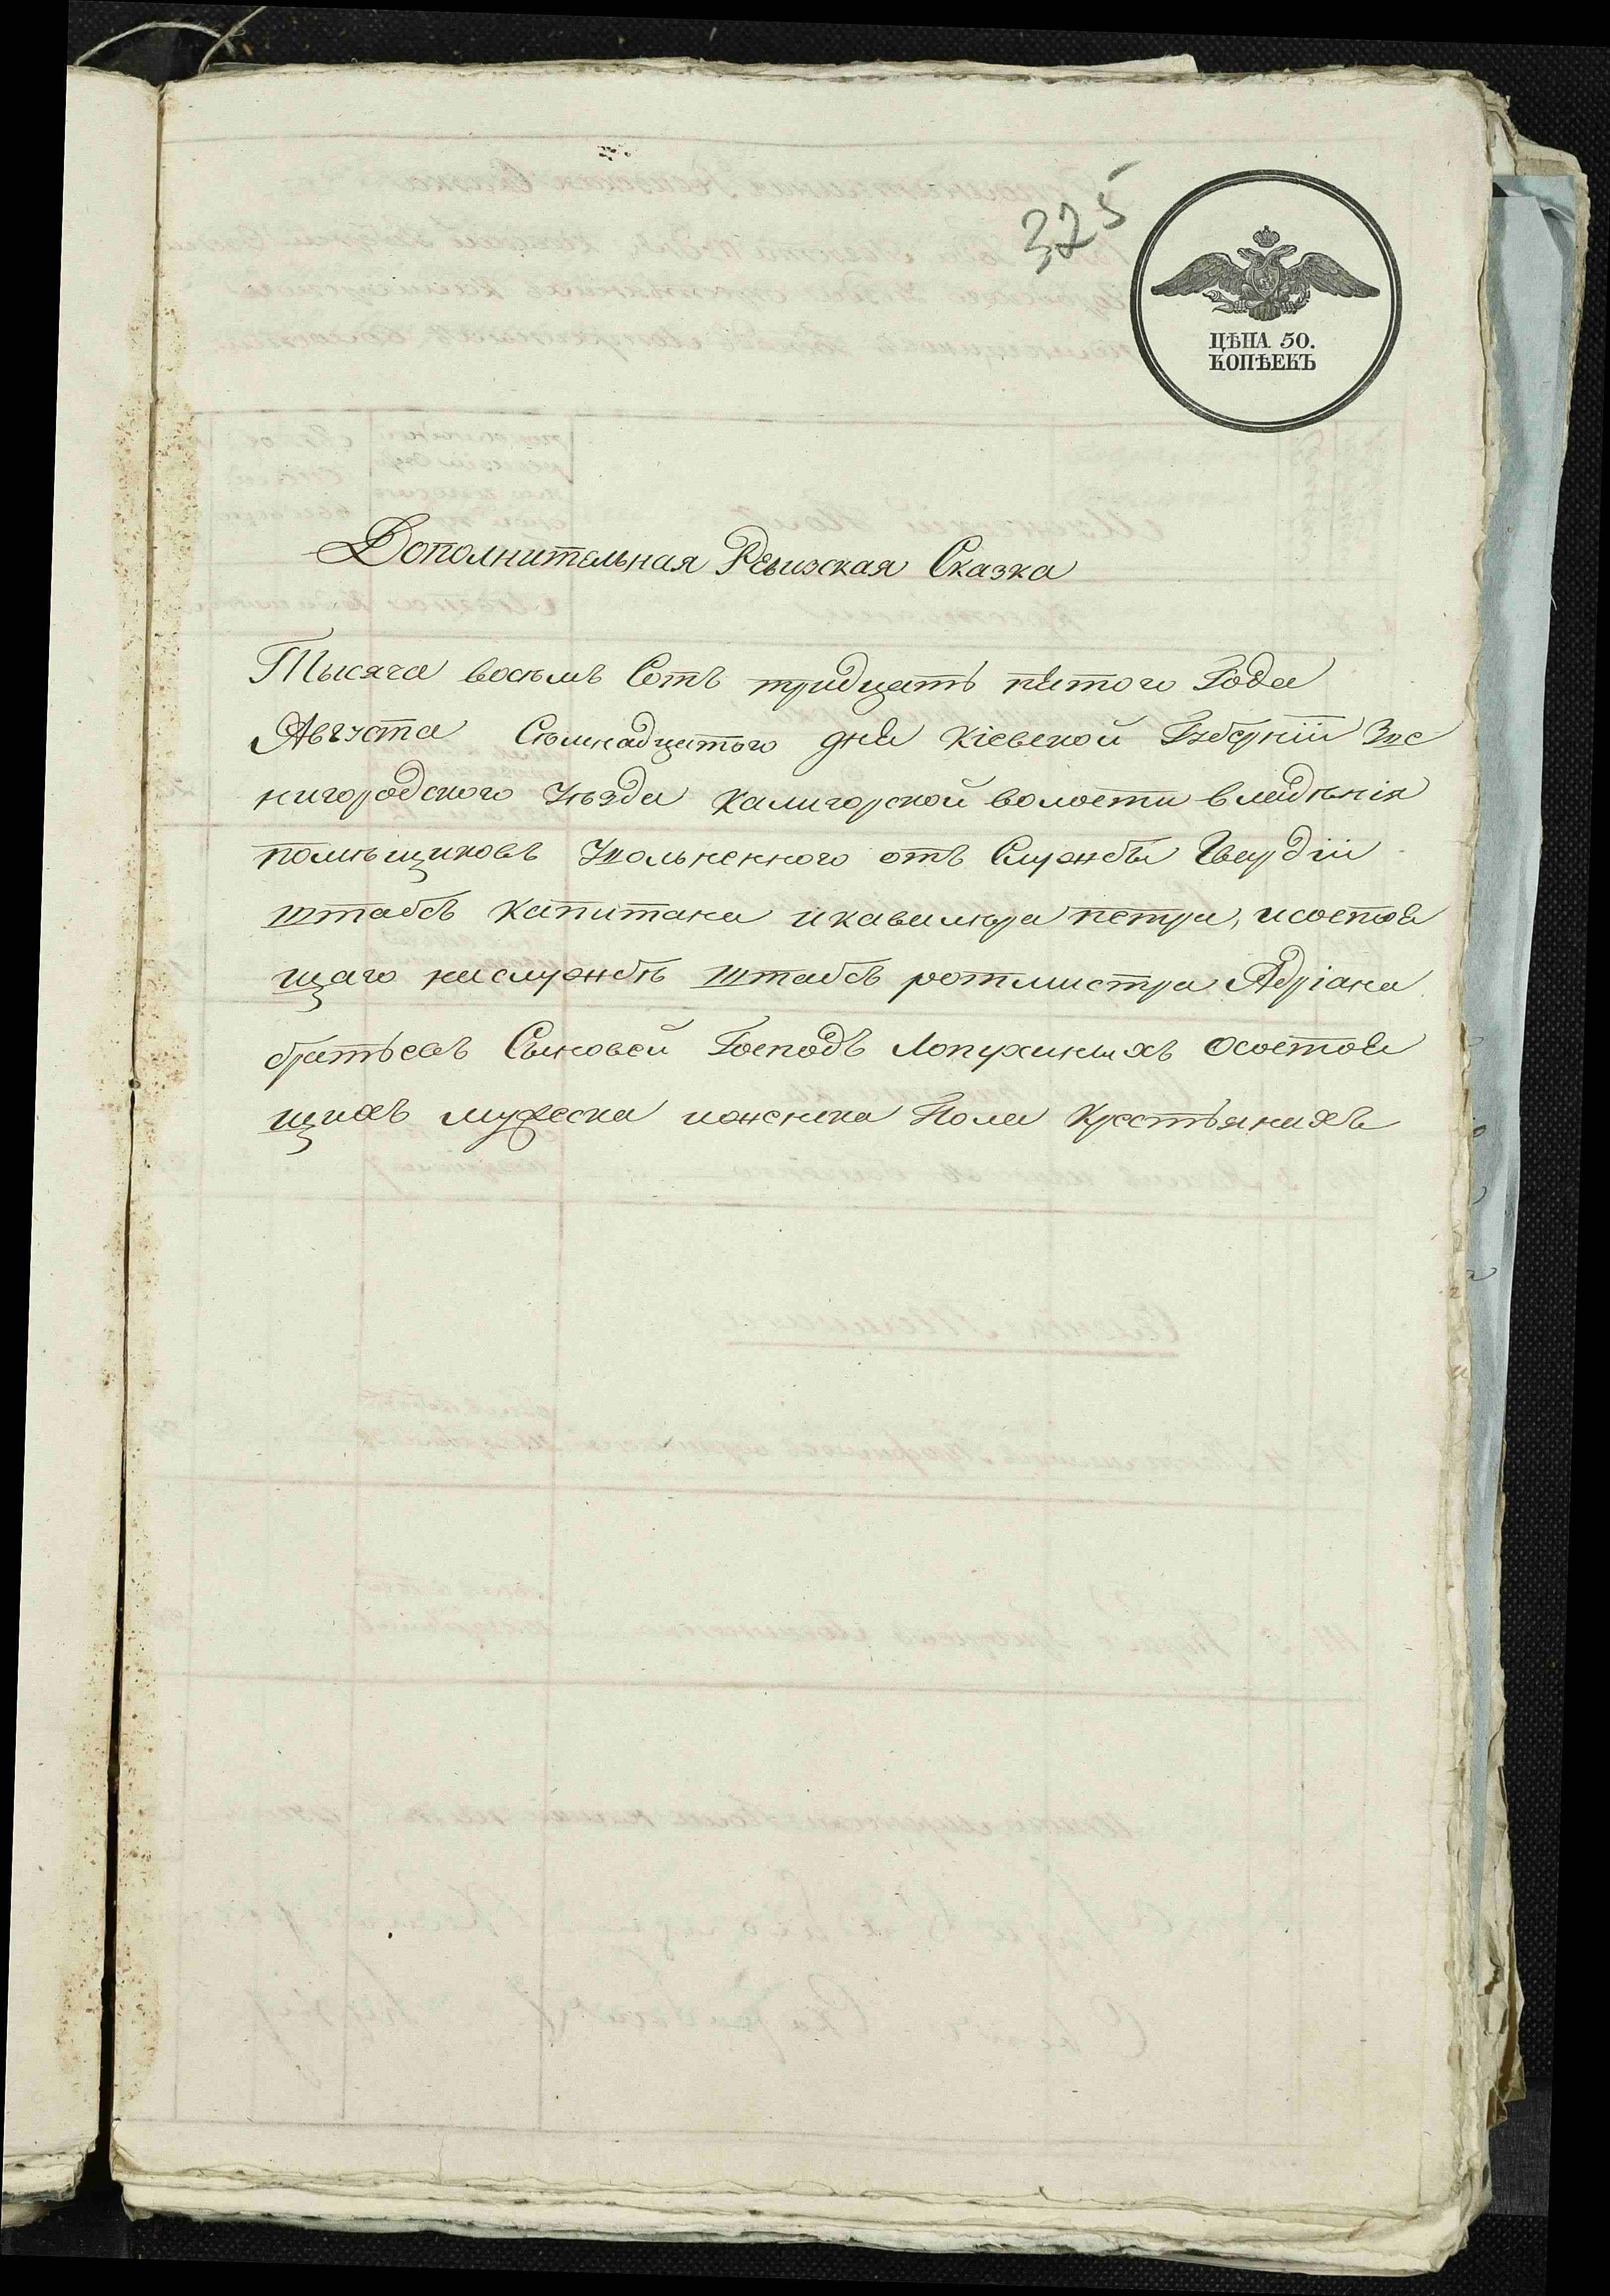 325
ЦѢНА 50.
КОПѢЕКЪ
Дополнительная Ревизская Сказка
Тысяча восемь Сотъ тридцать пятого Года
Августа Семнадцатого дня Кіевской Губерніи Зве
нигородского Уѣзда Калигорской волости владѣнія
помѣщиковъ Уволненного отъ Службы Гвардіи
штабсъ Капитана и кавалера петра, и состоя
щаго на службѣ штабсъ ротмистра Адріана
братьевъ Сыновей Господъ Лопухиныхъ о состоя
щихъ мужеска и женска Пола Крестьянахъ